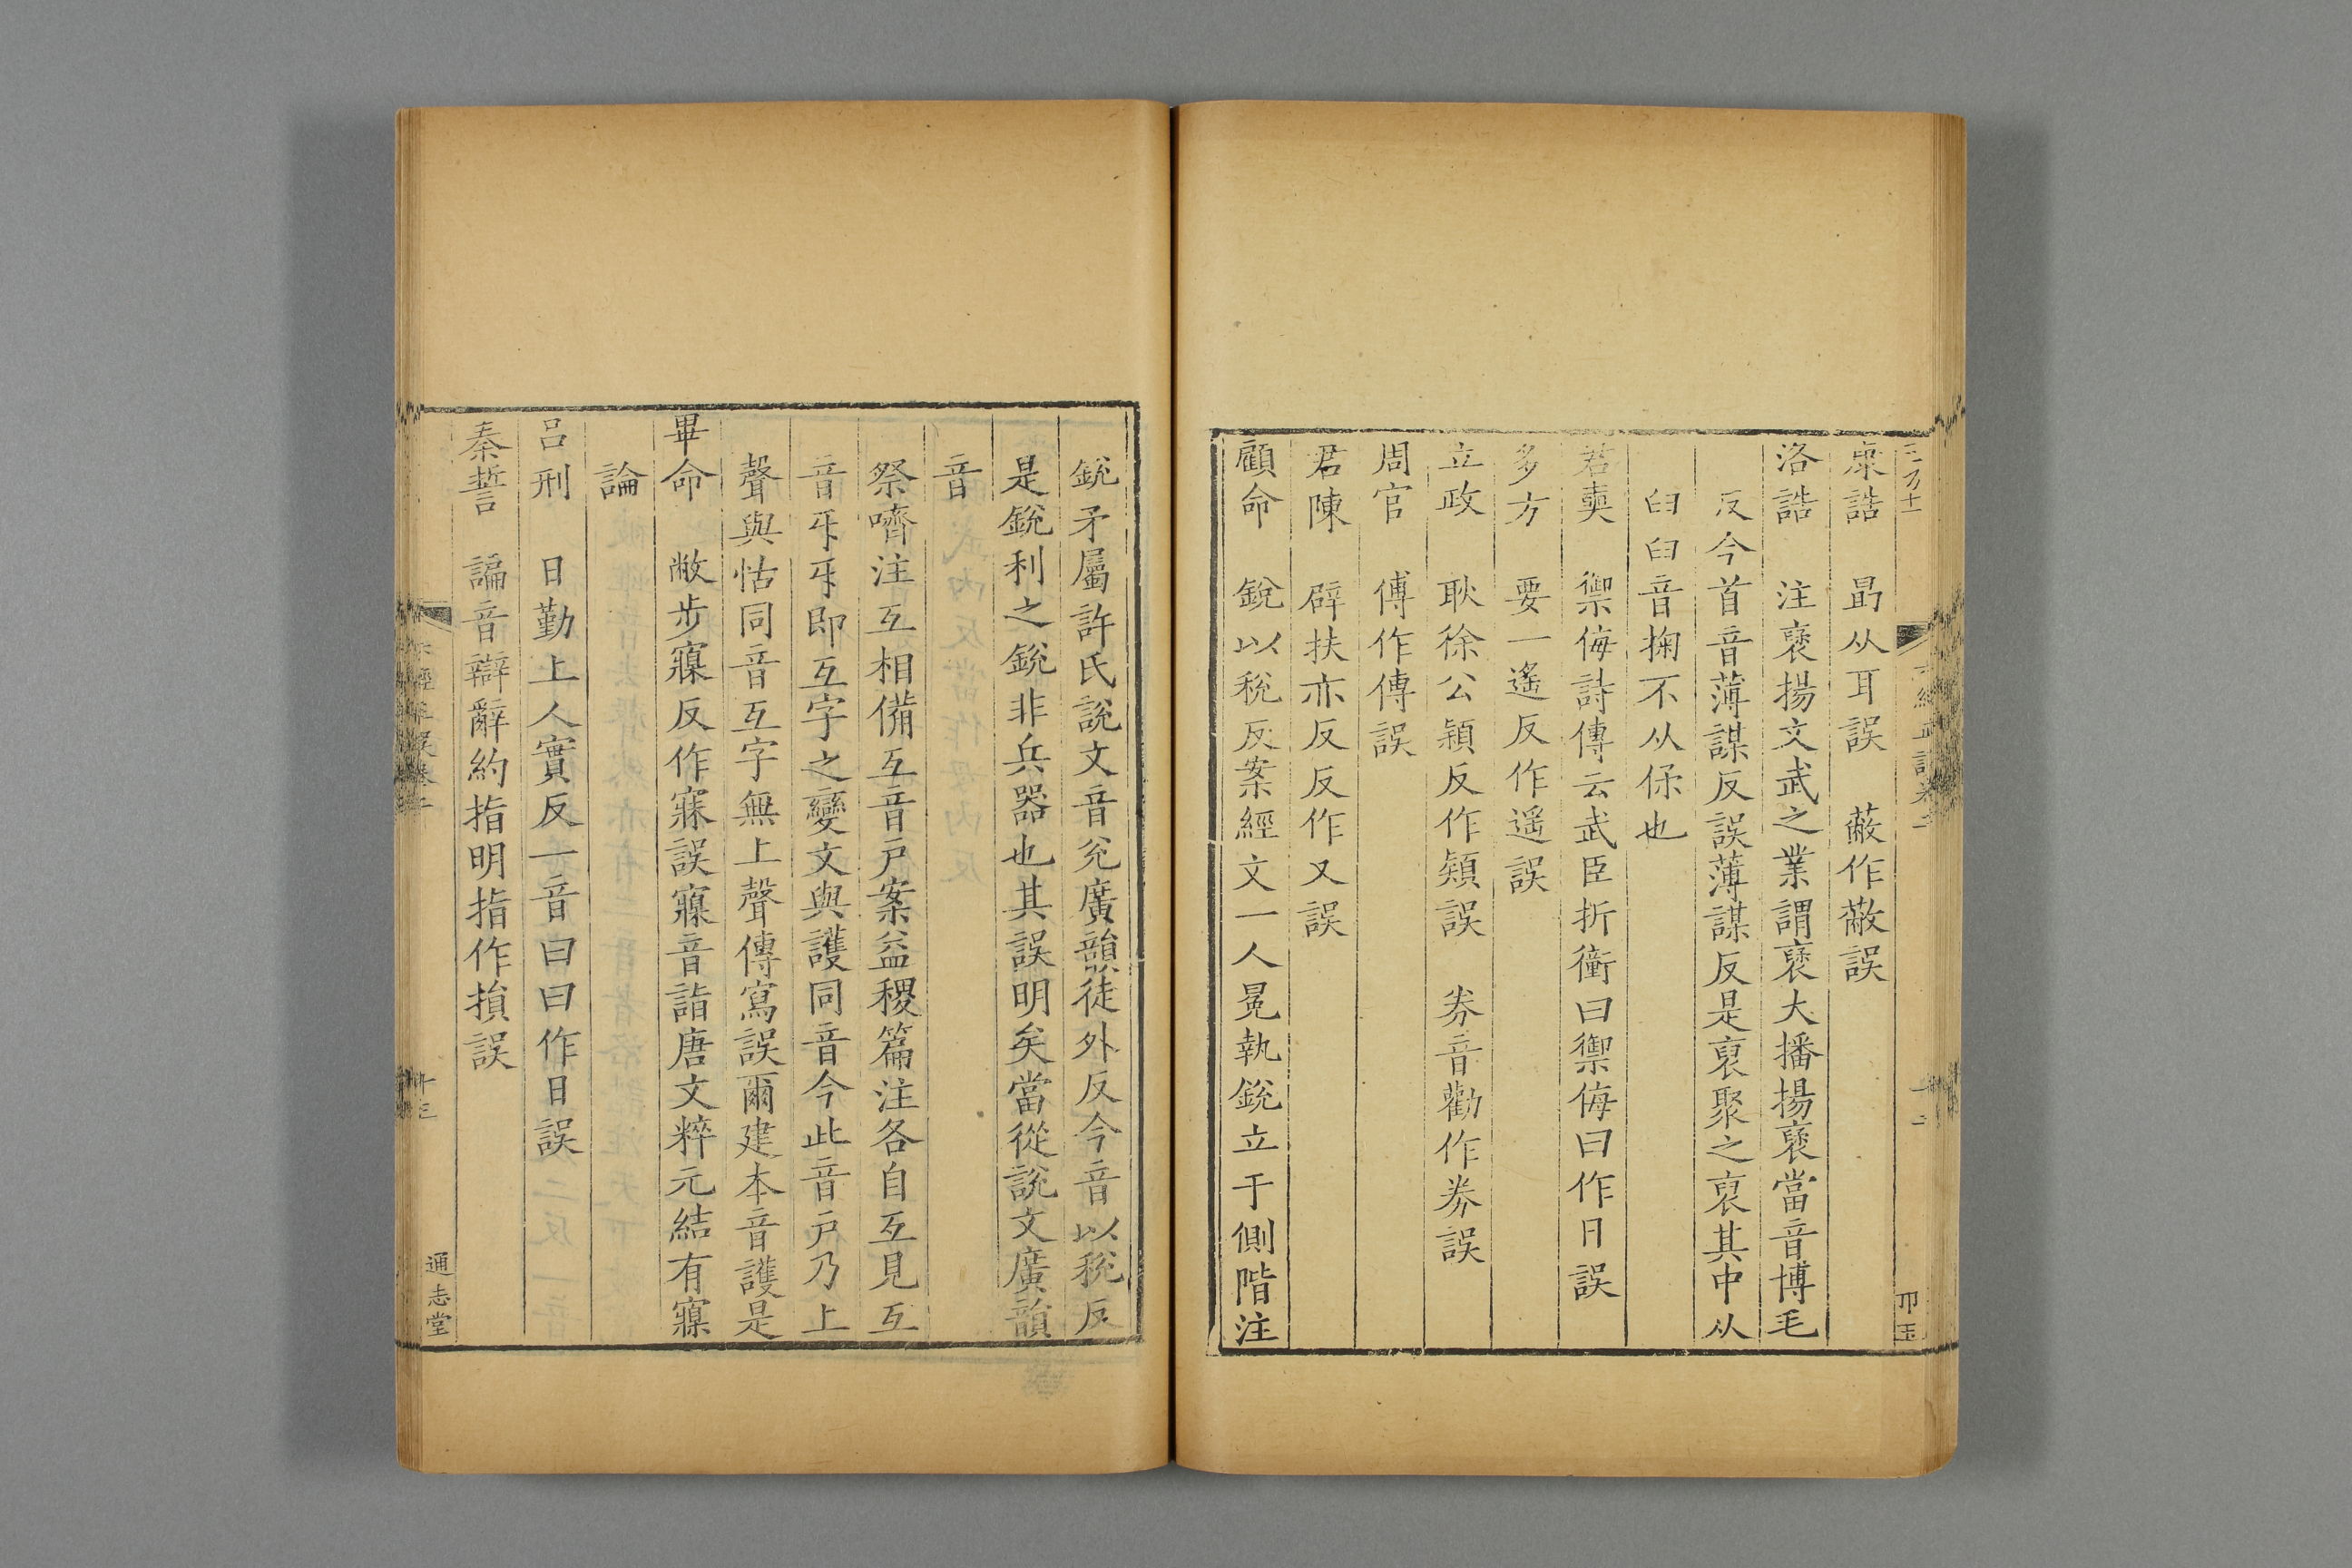 康誥　勗从耳誤　蔽作蔽誤
洛誥　注襃揚文武之業謂襃大播揚襃當音博毛
反今首音薄謀反誤薄謀反是裒聚之裒其中从
𦥑𦥑音掬不从保也
君奭　禦侮詩傳云武臣折衝曰禦侮曰作日誤
多方　要一遙反作遥誤
立政　耿徐公穎反作潁誤　券音勸作劵誤
周官　傅作傳誤
君陳　辟扶亦反反作又誤
顧命　銳以稅反案經文一人冕執銳立于側階注
銳矛屬許氏說文音兊廣韻徒外反今音以稅反
是銳利之銳非兵器也其誤明矣當從說文廣韻
音
祭嚌注互相備互音戸案益稷篇注各自互見互
音㸦㸦即互字之變文與護同音今此音戸乃上
聲與怙同音互字無上聲傳寫誤爾建本音護是
畢命　敝步寱反作寐誤寱音詣唐文粹元結有寱
論
呂刑　日勤上人實反一音曰曰作日誤
秦誓　諞音辯辭約指明指作損誤
十三
通志堂